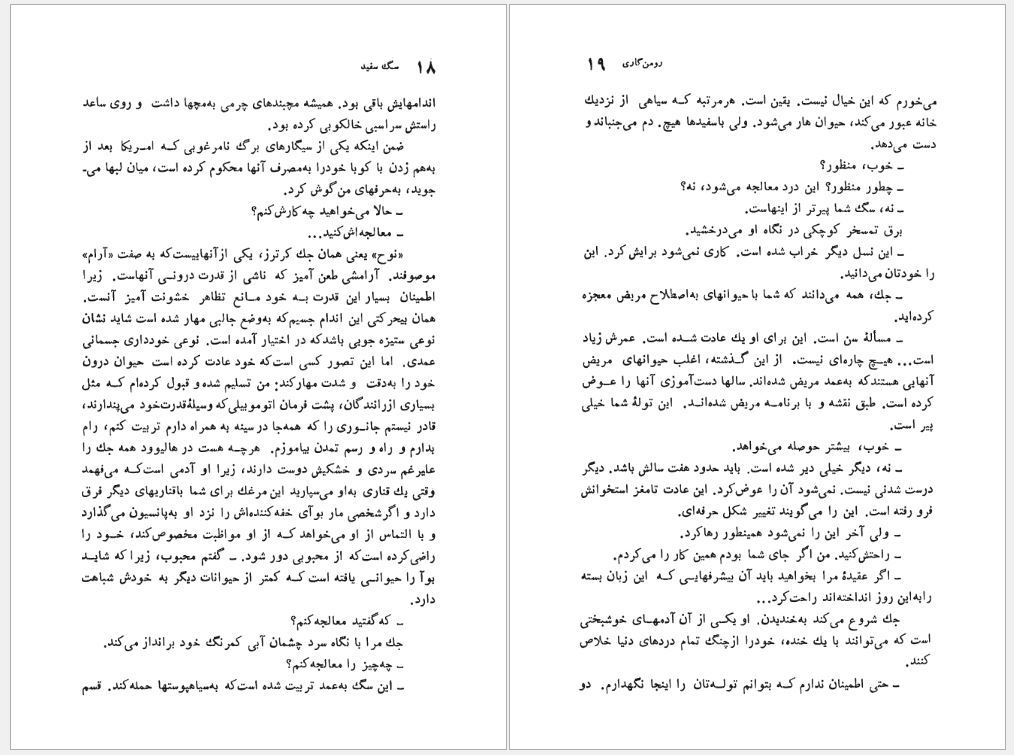 ۱۸ سگ سفید
اندامهایش باقی بود. همیشه مچبندهای چرمی به‌مچها داشت و روی ساعد
راستش سراسبی خالکوبی کرده بود.
ضمن اینکه یکی از سیگارهای برگ نامرغوبی کــه امـریکا بعد از
به‌هم زدن با کوبا خودرا به‌مصرف آنها محکوم کرده است، میان لبها می‌ـ
جوید، به‌حرفهای من‌گوش کرد.
ـ حالا می‌خواهید چه‌کارش‌کنم؟
ـ معالجه‌اش‌کنید...
«نوح» یعنی همان جك کرترز، یکی ازآنهاییست‌که به صفت «آرام»
موصوفند. آرامشی طعن آمیز که ناشی از قدرت درونـی آنهاست. زیرا
اطمینان بسیار این قدرت بــه خود مــانع تظاهر خشونت آمیز آنست.
همان بیحرکتی این اندام جسیم‌که به‌وضع جالبی مهار شده است شاید نشان
نوعی ستیزه جویی باشدکه در اختیار آمده است. نوعی خودداری جسمانی
عمدی. اما این تصور کسی است‌که خود عادت کرده است حیوان درون
خود را به‌دقت و شدت مهارکند: من تسلیم شده‌و قبول کرده‌ام کــه مثل
بسیاری ازرانندگان، پشت فرمان اتوموبیلی‌که وسیلهٔ‌قدرت‌خود می‌پندارند،
قادر نیستم جانــوری را که همه‌جا درسینه به همراه دارم تربیت کنم، رام
بدارم و راه و رسم تمدن بیاموزم. هرچــه هست در هالیوود همه جك را
علیرغم سردی و خشکیش دوست دارند، زیرا او آدمی است‌کــه می‌فهمد
وقتی یك قناری به‌او می‌سپارید این مرغك برای شما باقناریهای دیگر فرق
دارد و اگرشخصی مار بوآی خفه‌کننده‌اش را نزد او به‌پانسیون می‌گذارد
و با التماس از او می‌خواهد کــه از او مواظبت مخصوص‌کند، خــود را
راضی‌کرده است‌که از محبوبی دور شود. ـ گفتم محبوب، زیرا که شایــد
بوآ را حیوانــی یافته است کــه کمتر از حیوانات دیگر به خودش شباهت
دارد.
ـ که‌گفتید معالجه‌کنم؟
جك مرا با نگاه سرد چشمان آبی کمرنگ خود برانداز می‌کند.
ـ چه‌چیز را معالجه‌کنم؟
ـ این سگ به‌عمد تربیت شده است‌که به‌سیاهپوستها حمله‌کند. قسم
رومن‌گاری ۱۹
می‌خورم که این خیال نیست. یقین است. هرمرتبه کــه سیاهی از نزدیك
خانه عبور می‌کند، حیوان هار می‌شود. ولی باسفیدها هیچ. دم می‌جنباند و
دست می‌دهد.
ـ خوب، منظور؟
ـ چطور منظور؟ این درد معالجه می‌شود، نه؟
ـ نه، سگ شما پیرتر از اینهاست.
برق تمسخر کوچکی در نگاه او می‌درخشید.
ـ این نسل دیگر خراب شده است. کاری نمی‌شود برایش کرد. این
را خودتان می‌دانید.
ـ جك، همه می‌دانند که شما با حیوانهای به‌اصطلاح مریض معجزه
کرده‌اید.
ـ مسألهٔ سن است. این برای او یك عادت شــده است. عمرش زیاد
است... هیــچ چاره‌ای نیست. از این گــذشته، اغلب حیوانهای مریض
آنهایی هستندکه به‌عمد مریض شده‌اند. سالها دست‌آموزی آنها را عــوض
کرده است. طبق نقشه و با برنامــه مریض شده‌انــد. این تولهٔ شما خیلی
پیر است.
ـ خوب، بیشتر حوصله می‌خواهد.
ـ نه، دیگر خیلی دیر شده است. باید حدود هفت سالش باشد. دیگر
درست شدنی نیست. نمی‌شود آن را عوض‌کرد. این عادت تامغز استخوانش
فرو رفته است. این را می‌گویند تغییر شکل حرفه‌ای.
ـ ولی آخر این را نمی‌شود همینطور رهاکرد.
ـ راحتش‌کنید. من اگر جای شما بودم همین کار را می‌کردم.
ـ اگر عقیدهٔ مرا بخواهید باید آن بیشرفهایــی کــه این زبان بسته
را به‌این روز انداخته‌اند راحت‌کرد...
جك شروع می‌کند به‌خندیدن. او یکــی از آن آدمهــای خوشبختی
است که می‌توانند با یك خنده، خودرا ازچنگ تمام دردهای دنیا خلاص
کنند.
ـ حتی اطمینان ندارم کــه بتوانم تولــه‌تان را اینجا نگهدارم. دو